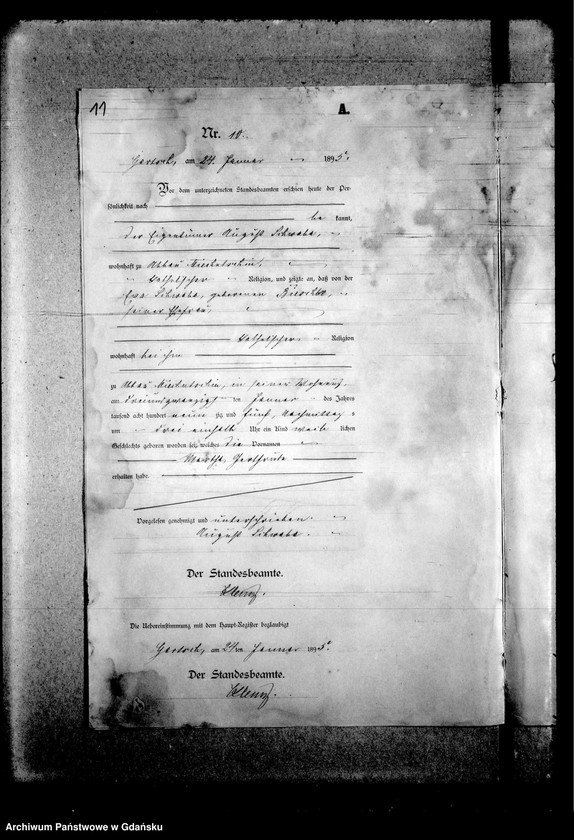 11
A.
Nr. 10.
am 24. Januar 1895.
Vor dem unterzeichneten Standesbeamten erschien heute der Per-
sönlichkeit nach
be kannt,
der Eigentümer August
wohnhaft zu Abbau
katholischer Religion, und zeigte an, daß von der
Eva geborenen
seiner Ehefrau,
katholischer Religion
wohnhaft bei ihm
zu Abbau in seiner Wohnung
am dreiundzwanzigsten Januar des Jahres
tausend acht hundert neun zig und fünf, Nachmittags
um drei einhalb Uhr ein Kind weib lichen
Geschlechts geboren worden sei, welches die Vornamen
Martha, Gerthrude
erhalten habe.
Vorgelesen, genehmigt und unterschrieben.
August
Der Standesbeamte.
Die Uebereinstimmung mit dem Haupt-Register beglaubigt
am 24ten Januar 1895.
Der Standesbeamte.
Archiwum Państwowe w Gdańsku